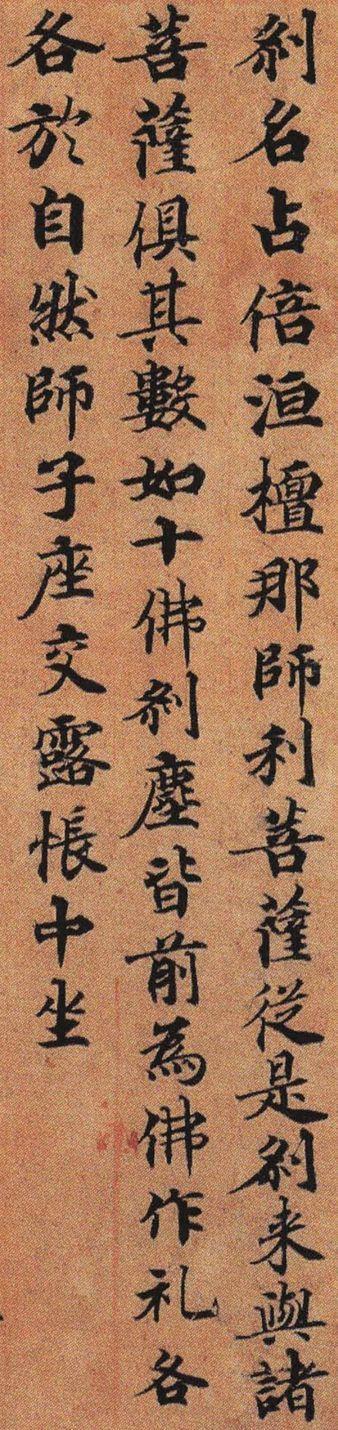 刹名占倍洹檀那師利菩薩從是刹来與諸
菩薩俱其數如十佛刹塵皆前為佛作礼各
各於自然師子座交露帳中坐